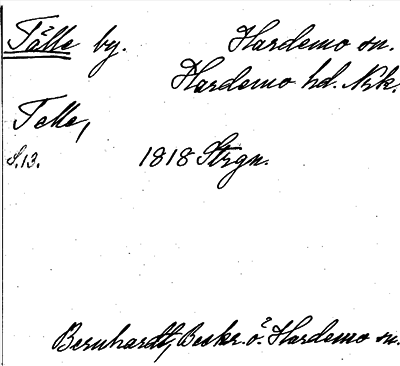 Tälle by. Hardemo sn.
Hardemo hd. Nrk.
Telle,
S.13. 1818 Strgn.
Bernhardt, Beskr. ö. Hardemo sn.